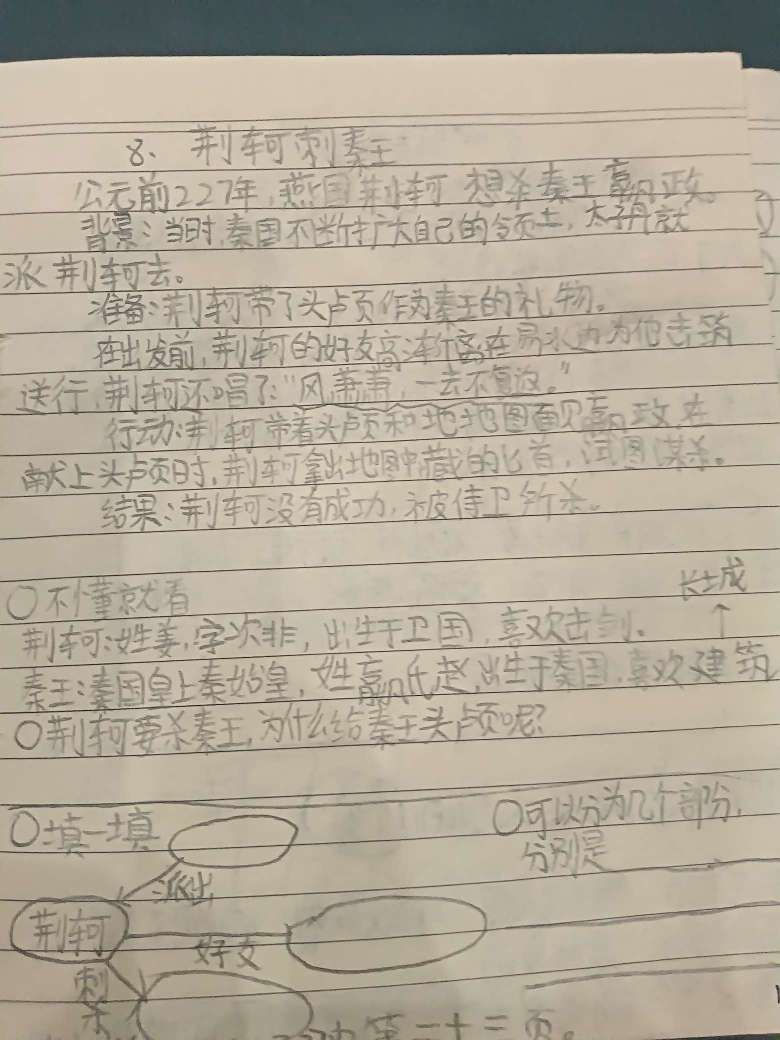 8、荆轲刺秦王
公元前227年,燕国荆轲 想杀秦王嬴政。
背景:当时,秦国不断扩大自己的领土,太子丹就
派荆轲去。
准备:荆轲带了头颅作为秦王的礼物。
在出发前,荆轲的好友高渐离在易水边为他击筑
送行,荆轲还唱了:“风萧萧,一去不复返。”
行动:荆轲带着头颅和地地图面见嬴政,在
献上头颅时,荆轲拿出地图中藏的匕首,试图谋杀。
结果:荆轲没有成功,被侍卫所杀。
○不懂就看
长城
↑
荆轲:姓姜,字次非,出生于卫国,喜欢击剑。
秦王:秦国皇上秦始皇,姓嬴氏赵,出生于秦国,喜欢建筑
○荆轲要杀秦王,为什么给秦王头颅呢?
○填一填
○可以分为几个部份,
分别是
派出
荆轲
好友
刺
杀
第二十三页。